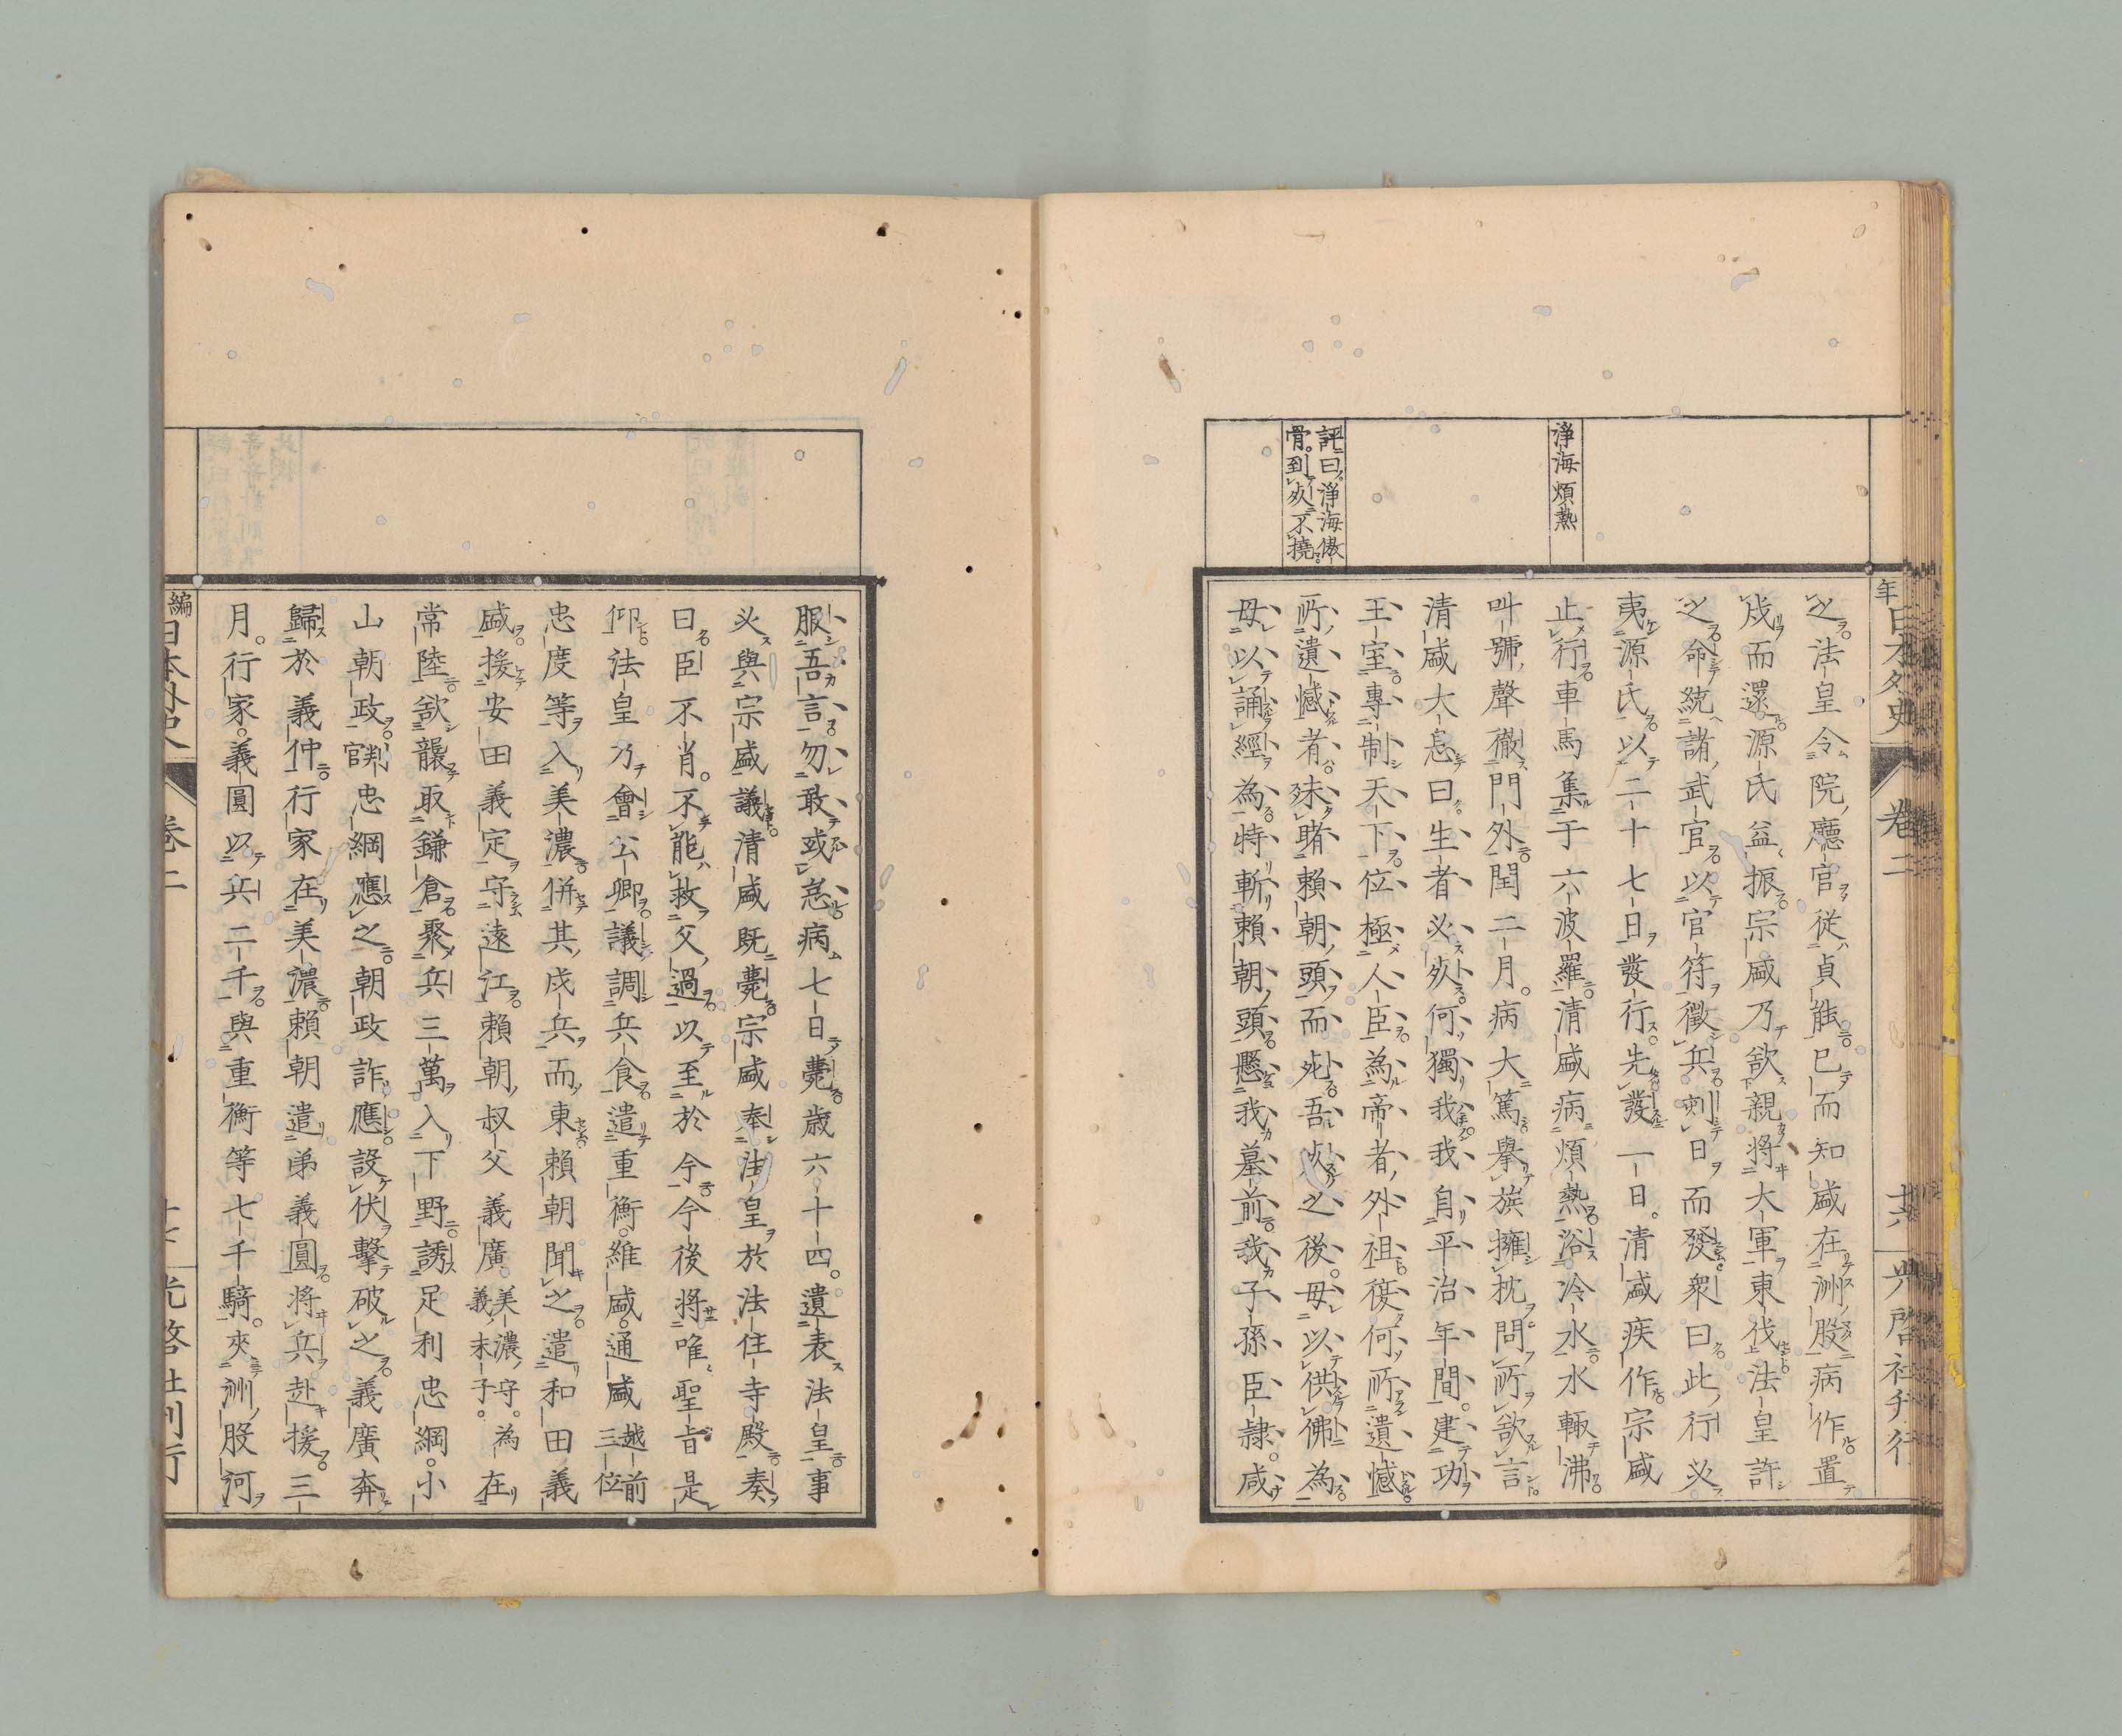 浄海煩熱
評曰浄海傲
骨到死不撓
之法皇令院廳官從貞能已而知盛在洲股病作置
戍而還源氏益振宗盛乃欲親將大軍東伐法皇許
之命統諸武官以官符徵兵刻日而發衆曰此行必
夷源氏以二十七日發行先發一日清盛疾作宗盛
止行車馬集于六波羅清盛病煩熱浴冷水水輒沸
叫號聲徹門外閏二月病大篤擧族擁枕問所欲言
清盛大息曰生者必死何獨我我自平治年間建功
王室專制天下位極人臣為帝者外祖復何所遺憾
所遺憾者未睹賴朝頭而死吾死之後毋以供佛為
毋以誦經為特斬賴朝頭懸我墓前我子孫臣隷咸
服吾言勿敢或怠病七日薨歳六十四遺表法皇事
必與宗盛議清盛既薨宗盛奉法皇於法住寺殿奏
曰臣不肖不能救父過以至於今今後將唯聖旨是
仰法皇乃會公卿議調兵食遣重衡維盛通盛越前三位
忠度等入美濃併其戍兵而東賴朝聞之遣和田義
盛援安田義定守遠江賴朝叔父義廣美濃守為義末子在
常陸欲襲取鎌倉聚兵三萬入下野誘足利忠綱小
山朝政判官忠綱應之朝政詐應設伏擊破之義廣奔
歸於義仲行家在美濃賴朝遣弟義圓將兵赴援三
月行家義圓以兵二千與重衡等七千騎夾洲股河